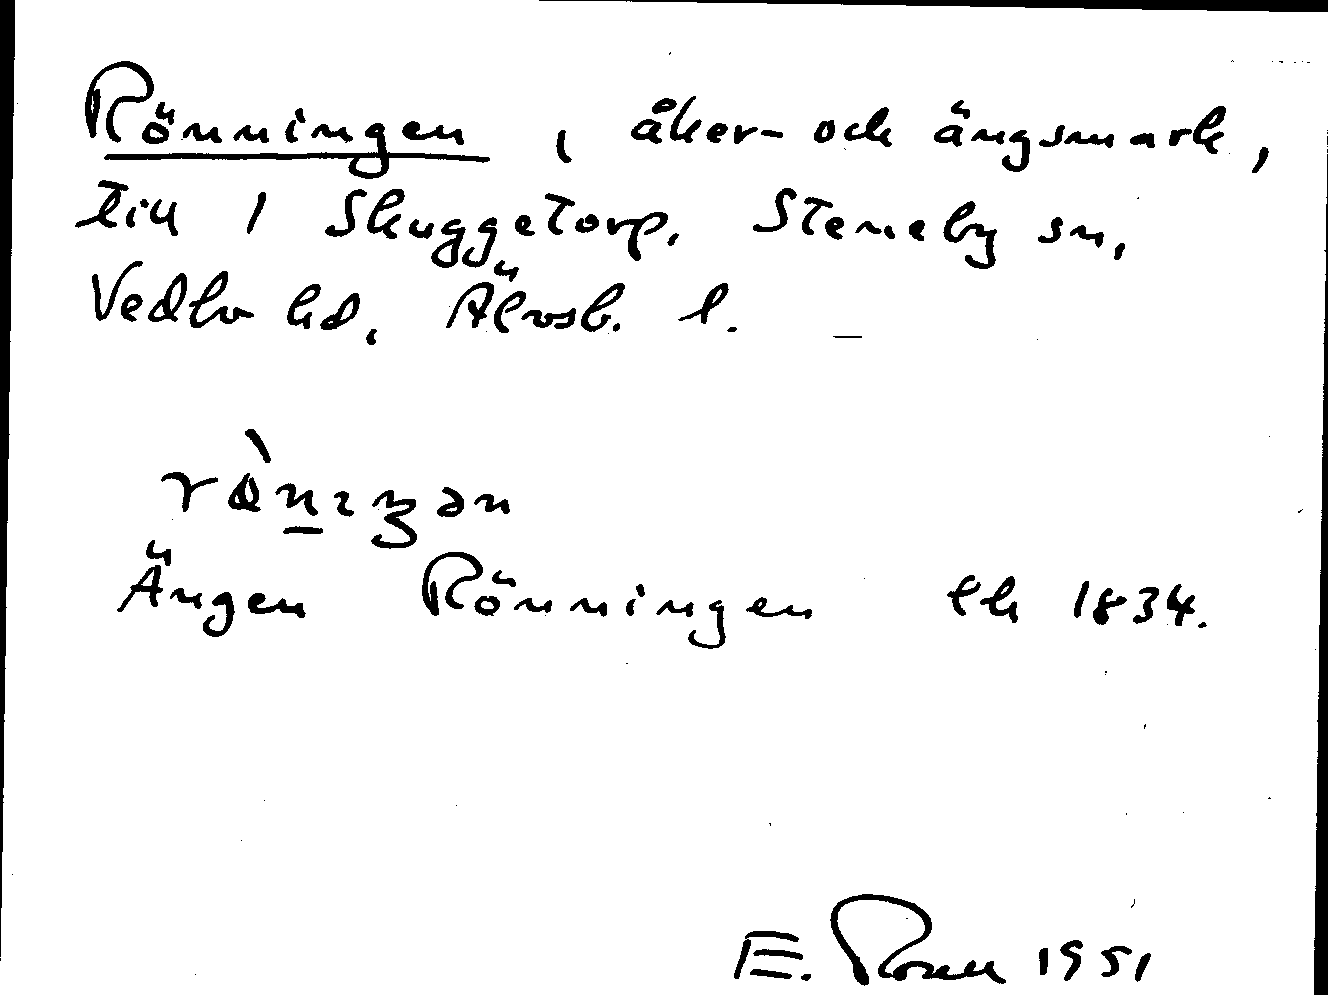 Rönningen, åker- och ängsmark,
till 1 Skuggetorp, Steneby sn,
Vedbo hd, Älvsb. l. —
Ängen Rönningen lk 1834.
E. Rosell 1951